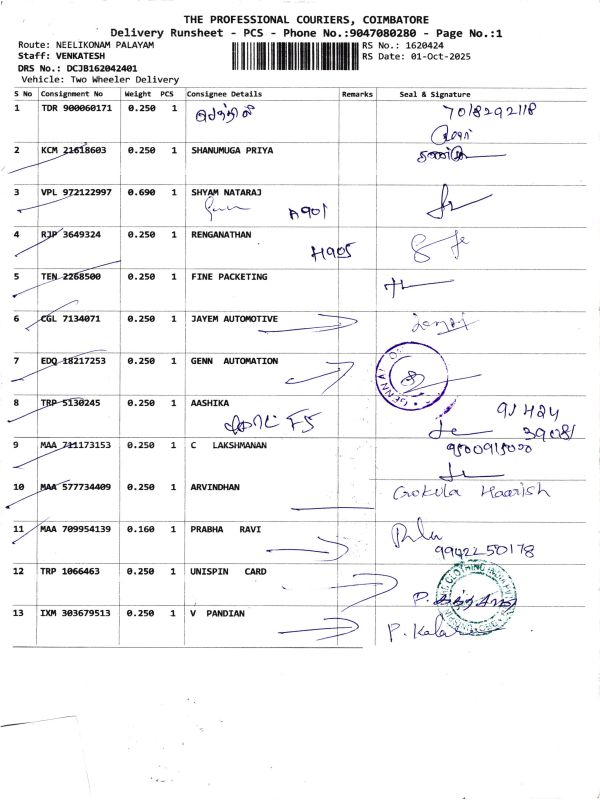 THE PROFESSIONAL COURIERS, COIMBATORE
Delivery Runsheet - PCS - Phone No.:9047080280 - Page No.:1
Route: NEELIKONAM PALAYAM RS No.: 1620424
Staff: VENKATESH RS Date: 01-Oct-2025
DRS No.: DCJB162042401
Vehicle: Two Wheeler Delivery
S No Consignment No Weight PCS Consignee Details Remarks Seal & Signature
1 TDR 900060171 0.250 1 7018292118
2 KCM 21618603 0.250 1 SHANUMUGA PRIYA
3 VPL 972122997 0.690 1 SHYAM NATARAJ
A901
4 RJP 3649324 0.250 1 RENGANATHAN
H905
5 TEN 2268500 0.250 1 FINE PACKETING
6 CGL 7134071 0.250 1 JAYEM AUTOMOTIVE
7 EDQ 18217253 0.250 1 GENN AUTOMATION
8 TRP 5130245 0.250 1 AASHIKA
F5 91 424
39081
9 MAA 711173153 0.250 1 C LAKSHMANAN
10 MAA 577734409 0.250 1 ARVINDHAN Gokula Haarish
11 MAA 709954139 0.160 1 PRABHA RAVI
9942250178
12 TRP 1066463 0.250 1 UNISPIN CARD
13 IXM 303679513 0.250 1 V PANDIAN
P. Kala